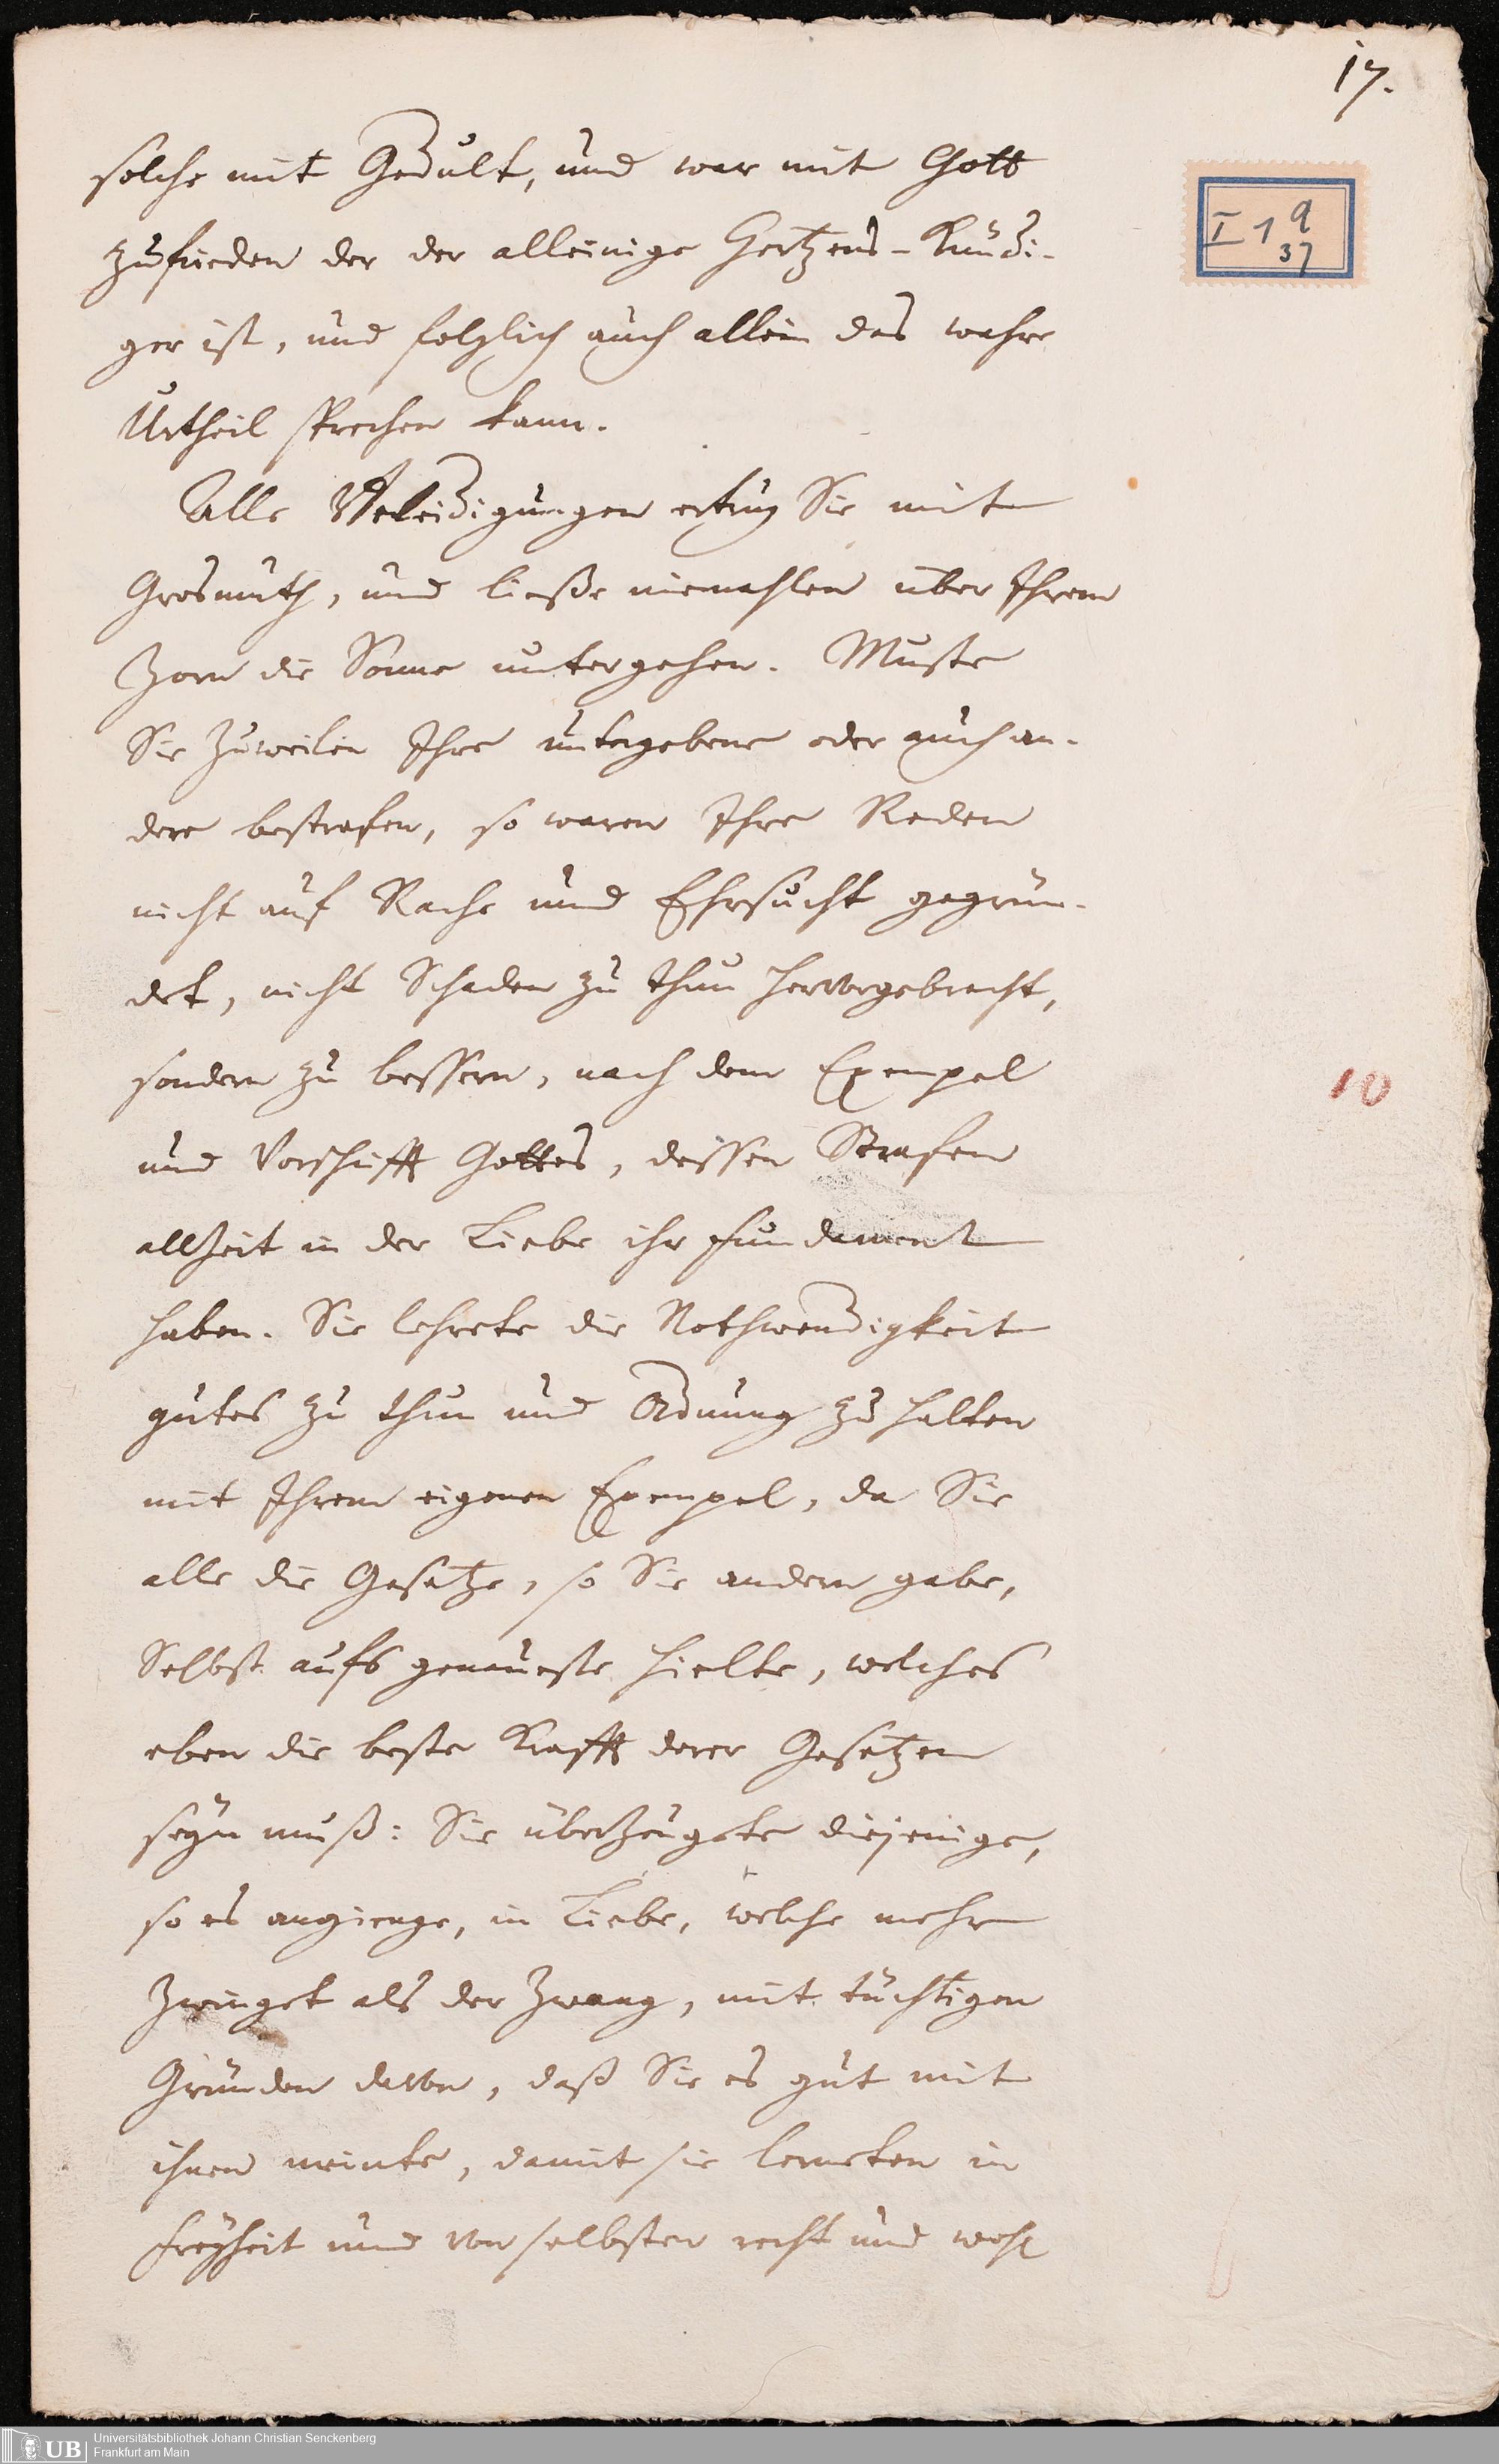 17.
solche mit Gedult, und war mit Gott
zufrieden der der alleinige Hertzens-Kündi-
ger ist, und folglich auch allein das wahre
Urtheil sprechen kann.
Alle Beleidigungen ertrug Sie mit
Grosmuth, und ließe niemahlen über Ihrem
Zorn die Sonne untergehen. Muste
Sie zuweilen Ihre untergebene oder auch an-
dere bestrafen, so waren Ihre Reden
nicht auf Rache und Ehrsucht gegrün-
det, nicht Schaden zu thun hervorgebracht,
sondern zu bessern, nach dem Exempel
und Vorschrifft Gottes, dessen Strafen
allzeit in der Liebe ihr fundament
haben. Sie lehrete die Nothwendigkeit
gutes zu thun und Ordnung zu halten
mit Ihrem eigenen Exempel, da Sie
alle die Gesetze, so Sie andern gabe,
Selbst aufs genaueste hielte, welches
eben die beste Krafft derer Gesetzen
seyn muß: Sie überzeugete diejenige,
so es angienge, in Liebe, welche mehr
zwinget als der Zwang, mit tüchtigen
Gründen davon, daß Sie es gut mit
ihnen meinte, damit sie lerneten in
freyheit und von selbsten recht und wohl
I 1 9
37
10
UB Universitätsbibliothek Johann Christian Senckenberg
Frankfurt am Main